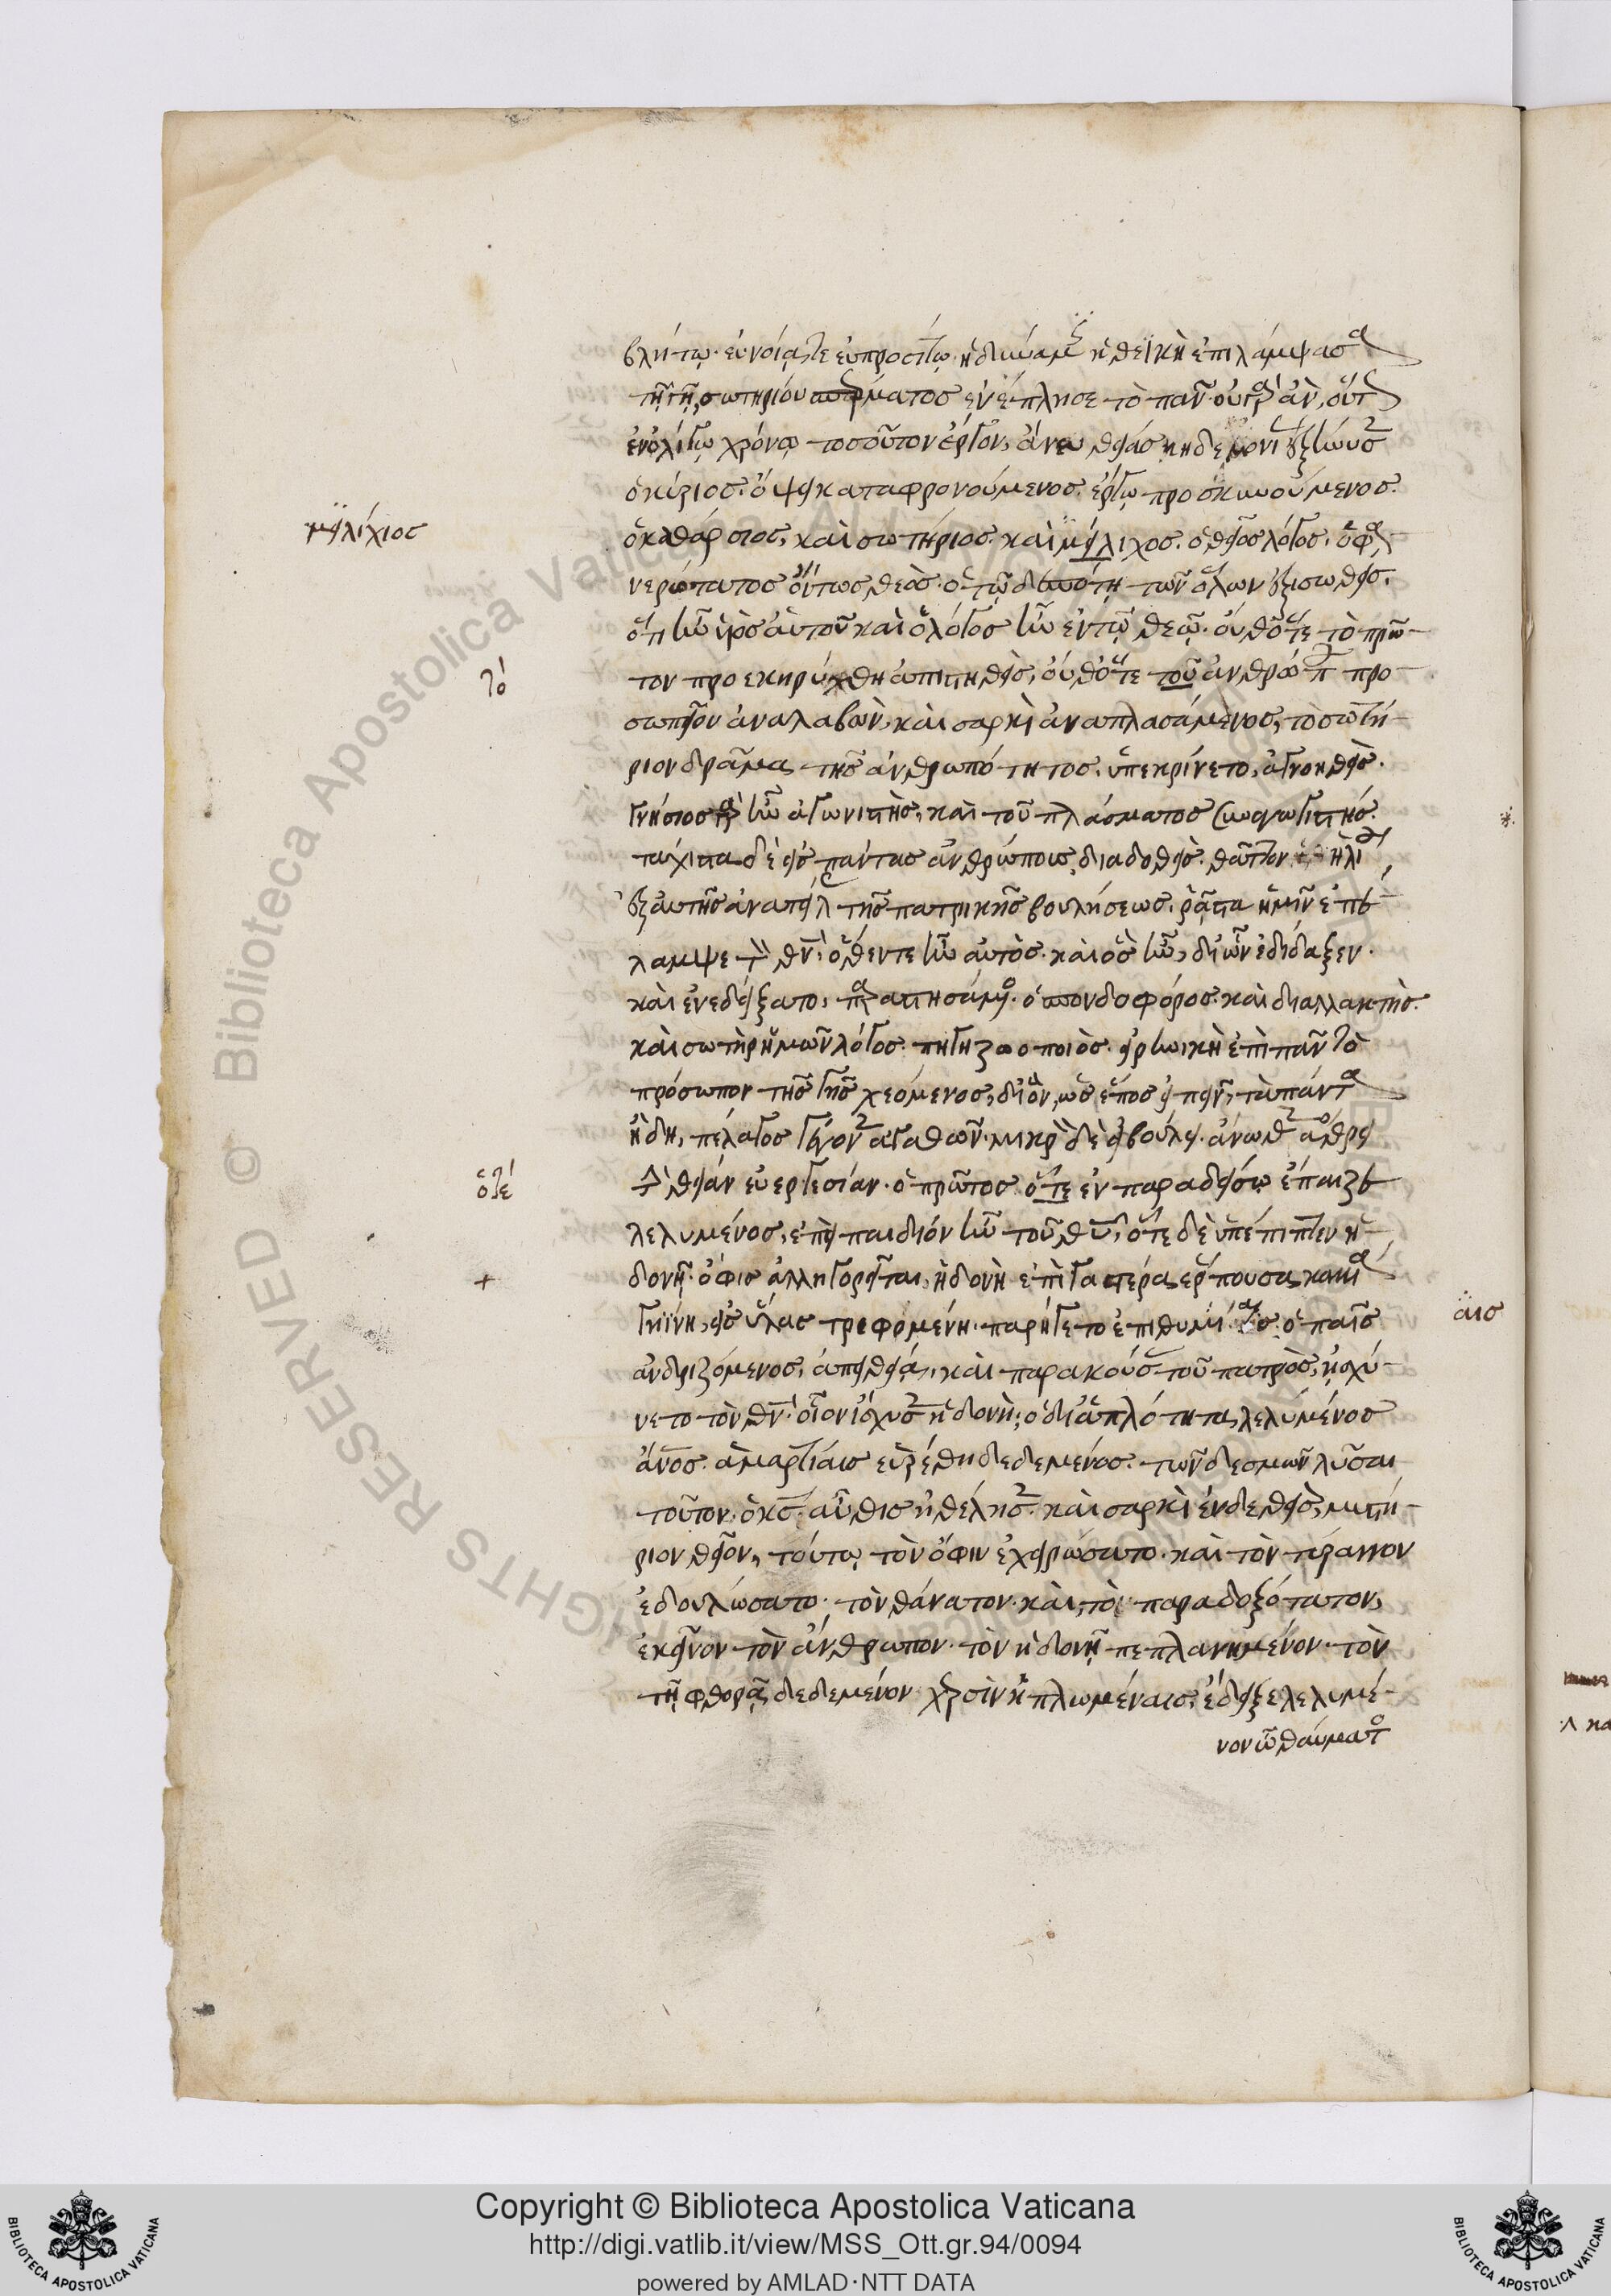 βλήτῳ· εὐνοίᾳ τε εὐπροσίτῳ· ἡ δύναμις ἡ θεϊκὴ ἐπιλάμψασα
τῇ γῇ, σωτηρίου σπέρματος ἐνέπλησε τὸ πᾶν· οὐ γὰρ ἂν, οὕτως
ἐν ὀλίγῳ χρόνῳ τοσοῦτον ἔργον, ἄνευ θείας κηδεμονίας ἐξήνυσεν
ὁ κύριος· ὄψει καταφρονούμενος· ἔργῳ προσκυνούμενος·
μειλίχιος
ὁ καθάρσιος, καὶ σωτήριος· καὶ μείλιχος· ὁ θεῖος λόγος· ὁ φα-
νερώτατος ὄντως θεὸς· ὁ τῷ δεσπότῃ τῶν ὅλων ἐξισωθείς·
ὅτι ἦν υἱὸς αὐτοῦ καὶ ὁ λόγος ἦν ἐν τῷ θεῷ· οὐθ' ὅτε τὸ πρῶ-
τό
τον προεκηρύχθη ἀπιστηθεὶς, οὐθ' ὅτε τοῦ ἀνθρώπου προ-
σωπεῖον ἀναλαβὼν, καὶ σαρκὶ ἀναπλασάμενος, τὸ σωτή-
ριον δρᾶμα τῆς ἀνθρωπότητος, ὑπεκρίνετο, ἀγνοηθείς·
γνήσιος γὰρ ἦν ἀγωνιστὴς, καὶ τοῦ πλάσματος συναγωνιστής·
τάχιστα δὲ εἰς πάντας ἀνθρώπους διαδοθεὶς· θᾶττον ἡλίου
ἐξ αὐτῆς ἀνατείλας τῆς πατρικῆς βουλήσεως, ῥᾷστα ἡμῖν ἐπέ-
λαμψε τὸν θν̄· ὅθεν τε ἦν αὐτὸς· καὶ ὃς ἦν, δι' ὧν ἐδίδαξεν·
καὶ ἐνεδείξατο, παραστησάμενος· ὁ σπονδοφόρος· καὶ διαλλακτὴς·
καὶ σωτὴρ ἡμῶν λόγος· πηγὴ ζωοποιὸς· εἰρηνικὴ ἐπὶ πᾶν τὸ
πρόσωπον τῆς γῆς χεόμενος, δι' ὃν, ὡς ἔπος εἰπεῖν, τὰ πάντα
ἤδη, πέλαγος γέγονεν ἀγαθῶν· μικρὸν δὲ εἰ βούλει· ἄνωθεν ἄθρει
ὁτέ
τὴν θείαν εὐεργεσίαν· ὁ πρῶτος ὅτε ἐν παραδείσῳ ἔπαιζε
λελυμένος, ἐπεὶ παιδίον ἦν τοῦ θῡ, ὅτε δὲ ὑπέπιπτεν ἡ-
+
δονῇ· ὄφις ἀλληγορεῖται, ἡδονὴ ἐπὶ γαστέρα ἕρπουσα, κακία
γηΐνη, εἰς ὕλας τρεφομένη· παρήγετο ἐπιθυμίαις· ὁ παῖς
αις
ἀνδριζόμενος, ἀπειθείᾳ, καὶ παρακούσας τοῦ πατρὸς, ᾐσχύ-
νετο τὸν θν̄· οἷον ἴσχυσεν ἡδονή; ὁ δι' ἁπλότητα, λελυμένος
ἄνος· ἁμαρτίαις εὑρέθη δεδεμένος· τῶν δεσμῶν λῦσαι
τοῦτον· ὁ κς̄ αὖθις ἠθέλησεν· καὶ σαρκὶ ἐνδεθεὶς, μυστή-
ριον θεῖον, τούτῳ τὸν ὄφιν ἐχειρώσατο· καὶ τὸν τύραννον
ἐδουλώσατο· τὸν θάνατον· καὶ, τὸ παραδοξότατον,
ἐκεῖνον τὸν ἄνθρωπον· τὸν ἡδονῇ πεπλανημένον· τὸν
τῇ φθορᾷ δεδεμένον χερσὶν ἡπλωμέναις, ἔδειξε λελυμέ-
νον ὢ θαύματος
Copyright © Biblioteca Apostolica Vaticana
http://digi.vatlib.it/view/MSS_Ott.gr.94/0094
powered by AMLAD·NTT DATA